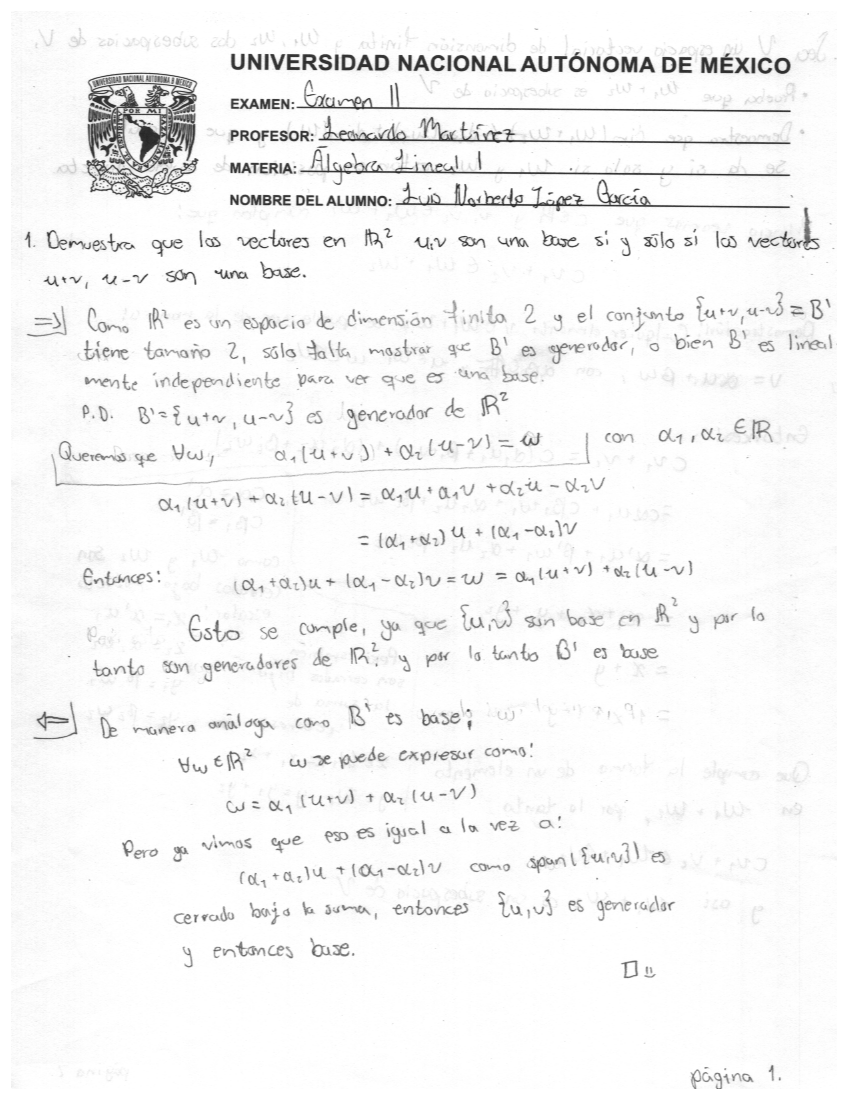 UNIVERSIDAD NACIONAL AUTÓNOMA DE MÉXICO
EXAMEN: Examen II
PROFESOR: Leonardo Martínez
MATERIA: Álgebra Lineal I
NOMBRE DEL ALUMNO: Luis Norberto López García
1. Demuestra que los vectores en ℝ² u,v son una base si y sólo si los vectores
u+v, u-v son una base.
⇒] Como ℝ² es un espacio de dimensión finita 2 y el conjunto {u+v, u-v} = B'
tiene tamaño 2, sólo falta mostrar que B' es generador, o bien B' es lineal
mente independiente para ver que es una base.
P.D. B'={u+v, u-v} es generador de ℝ²
Queremos que ∀w, α₁(u+v) + α₂(u-v) = w con α₁, α₂ ∈ ℝ
α₁(u+v) + α₂(u-v) = α₁u + α₁v + α₂u - α₂v
= (α₁+α₂)u + (α₁-α₂)v
Entonces: (α₁+α₂)u + (α₁-α₂)v = w = α₁(u+v) + α₂(u-v)
Esto se cumple, ya que {u,v} son base en ℝ² y por lo
tanto son generadores de ℝ². y por lo tanto B' es base
⇐] De manera análoga como B' es base;
∀w ∈ ℝ² w se puede expresar como:
w = α₁(u+v) + α₂(u-v)
Pero ya vimos que eso es igual a la vez a:
(α₁+α₂)u + (α₁-α₂)v como span({u,v}) es
cerrado bajo la suma, entonces {u,v} es generador
y entonces base.
□
página 1.